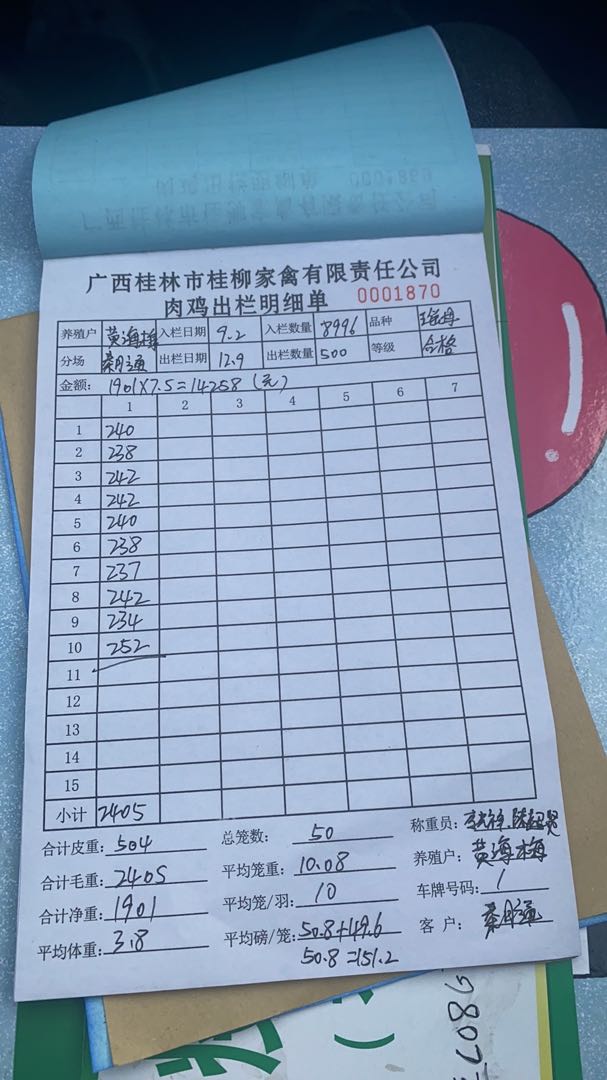 广西桂林市桂柳家禽有限责任公司
肉鸡出栏明细单 0001870
养殖户 黄海梅 入栏日期 9.2 入栏数量 8996 品种
分场 秦月通 出栏日期 12.9 出栏数量 500 等级 合格
金额: 1901X7.5=14258(元)
1 2 3 4 5 6 7
1 240
2 238
3 242
4 242
5 240
6 238
7 237
8 242
9 234
10 252
11
12
13
14
15
小计 2405
合计皮重: 504 总笼数: 50 称重员:
合计毛重: 2405 平均笼重: 10.08 养殖户: 黄海梅
合计净重: 1901 平均笼/羽: 10 车牌号码: /
平均体重: 3.8 平均磅/笼: 50.8+49.6 客户: 秦月通
50.8=151.2
9807